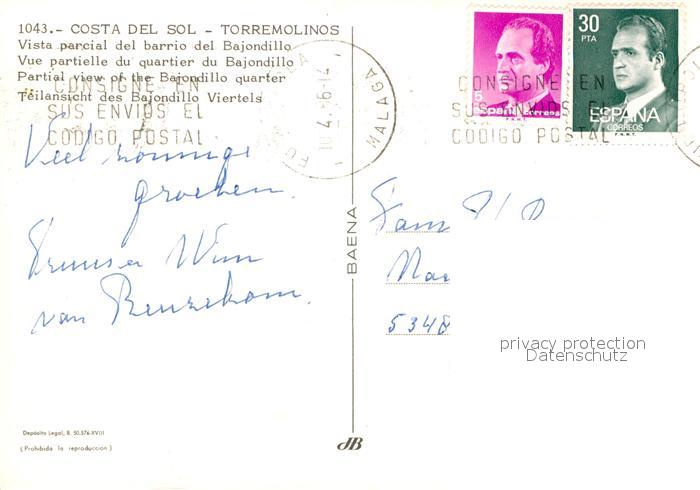 1043.- COSTA DEL SOL - TORREMOLINOS
Vista parcial del barrio del Bajondillo
Vue partielle du quartier du Bajondillo
Partial view of the Bajondillo quarter
Teilansicht des Bajondillo Viertels
CONSIGNE EN
SUS ENVIOS EL
CODIGO POSTAL
MALAGA
5
España correos
F.N.M.T.
30
PTA
ESPAÑA
CORREOS
F.N.M.T.
CONSIGNE EN
SUS ENVIOS EL
CODIGO POSTAL
Veel zonnige
groeten.
Wim
van
BAENA
Fam
5348
privacy protection
Datenschutz
Depósito Legal, B. 50.576-XVIII
(Prohibida la reproducción)